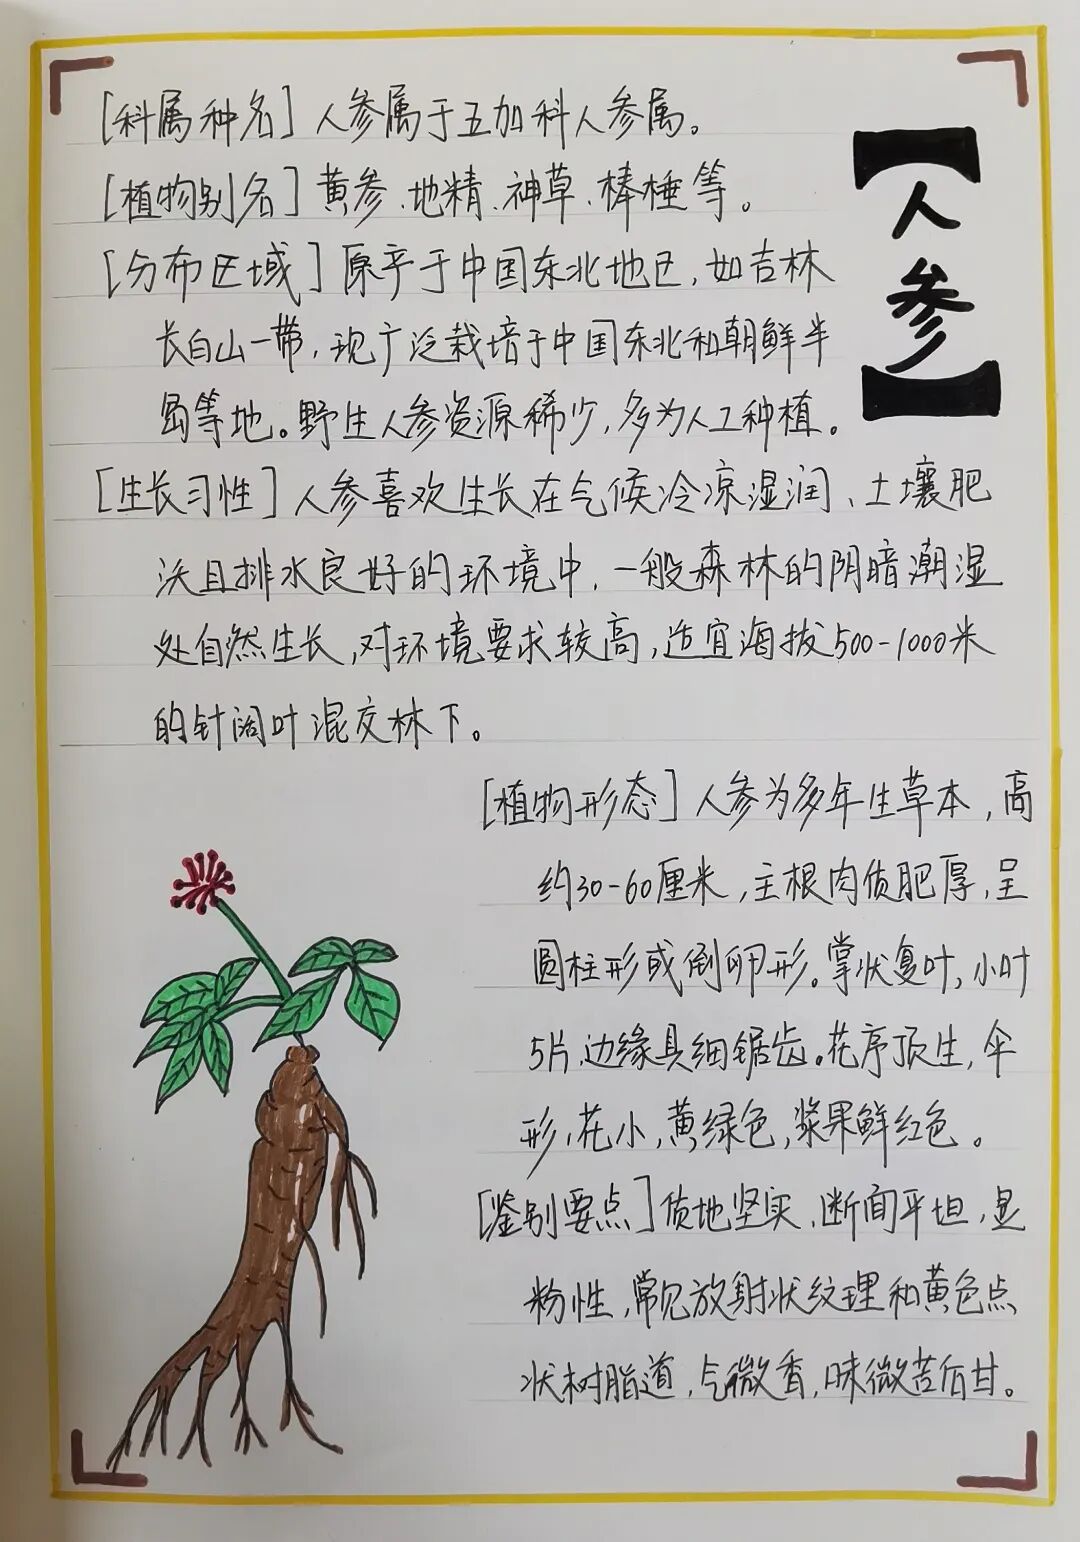 【人参】
[科属种名]人参属于五加科人参属。
[植物别名]黄参、地精、神草、棒棰等。
[分布区域]原产于中国东北地区,如吉林
长白山一带,现广泛栽培于中国东北和朝鲜半
岛等地。野生人参资源稀少,多为人工种植。
[生长习性]人参喜欢生长在气候冷凉湿润、土壤肥
沃且排水良好的环境中,一般森林的阴暗潮湿
处自然生长,对环境要求较高,适宜海拔500-1000米
的针阔叶混交林下。
[植物形态]人参为多年生草本,高
约30-60厘米,主根肉质肥厚,呈
圆柱形或倒卵形。掌状复叶,小叶
5片,边缘具细锯齿。花序顶生,伞
形,花小,黄绿色,浆果鲜红色。
[鉴别要点]质地坚实,断面平坦,显
粉性,常见放射状纹理和黄色点
状树脂道,气微香,味微苦后甘。